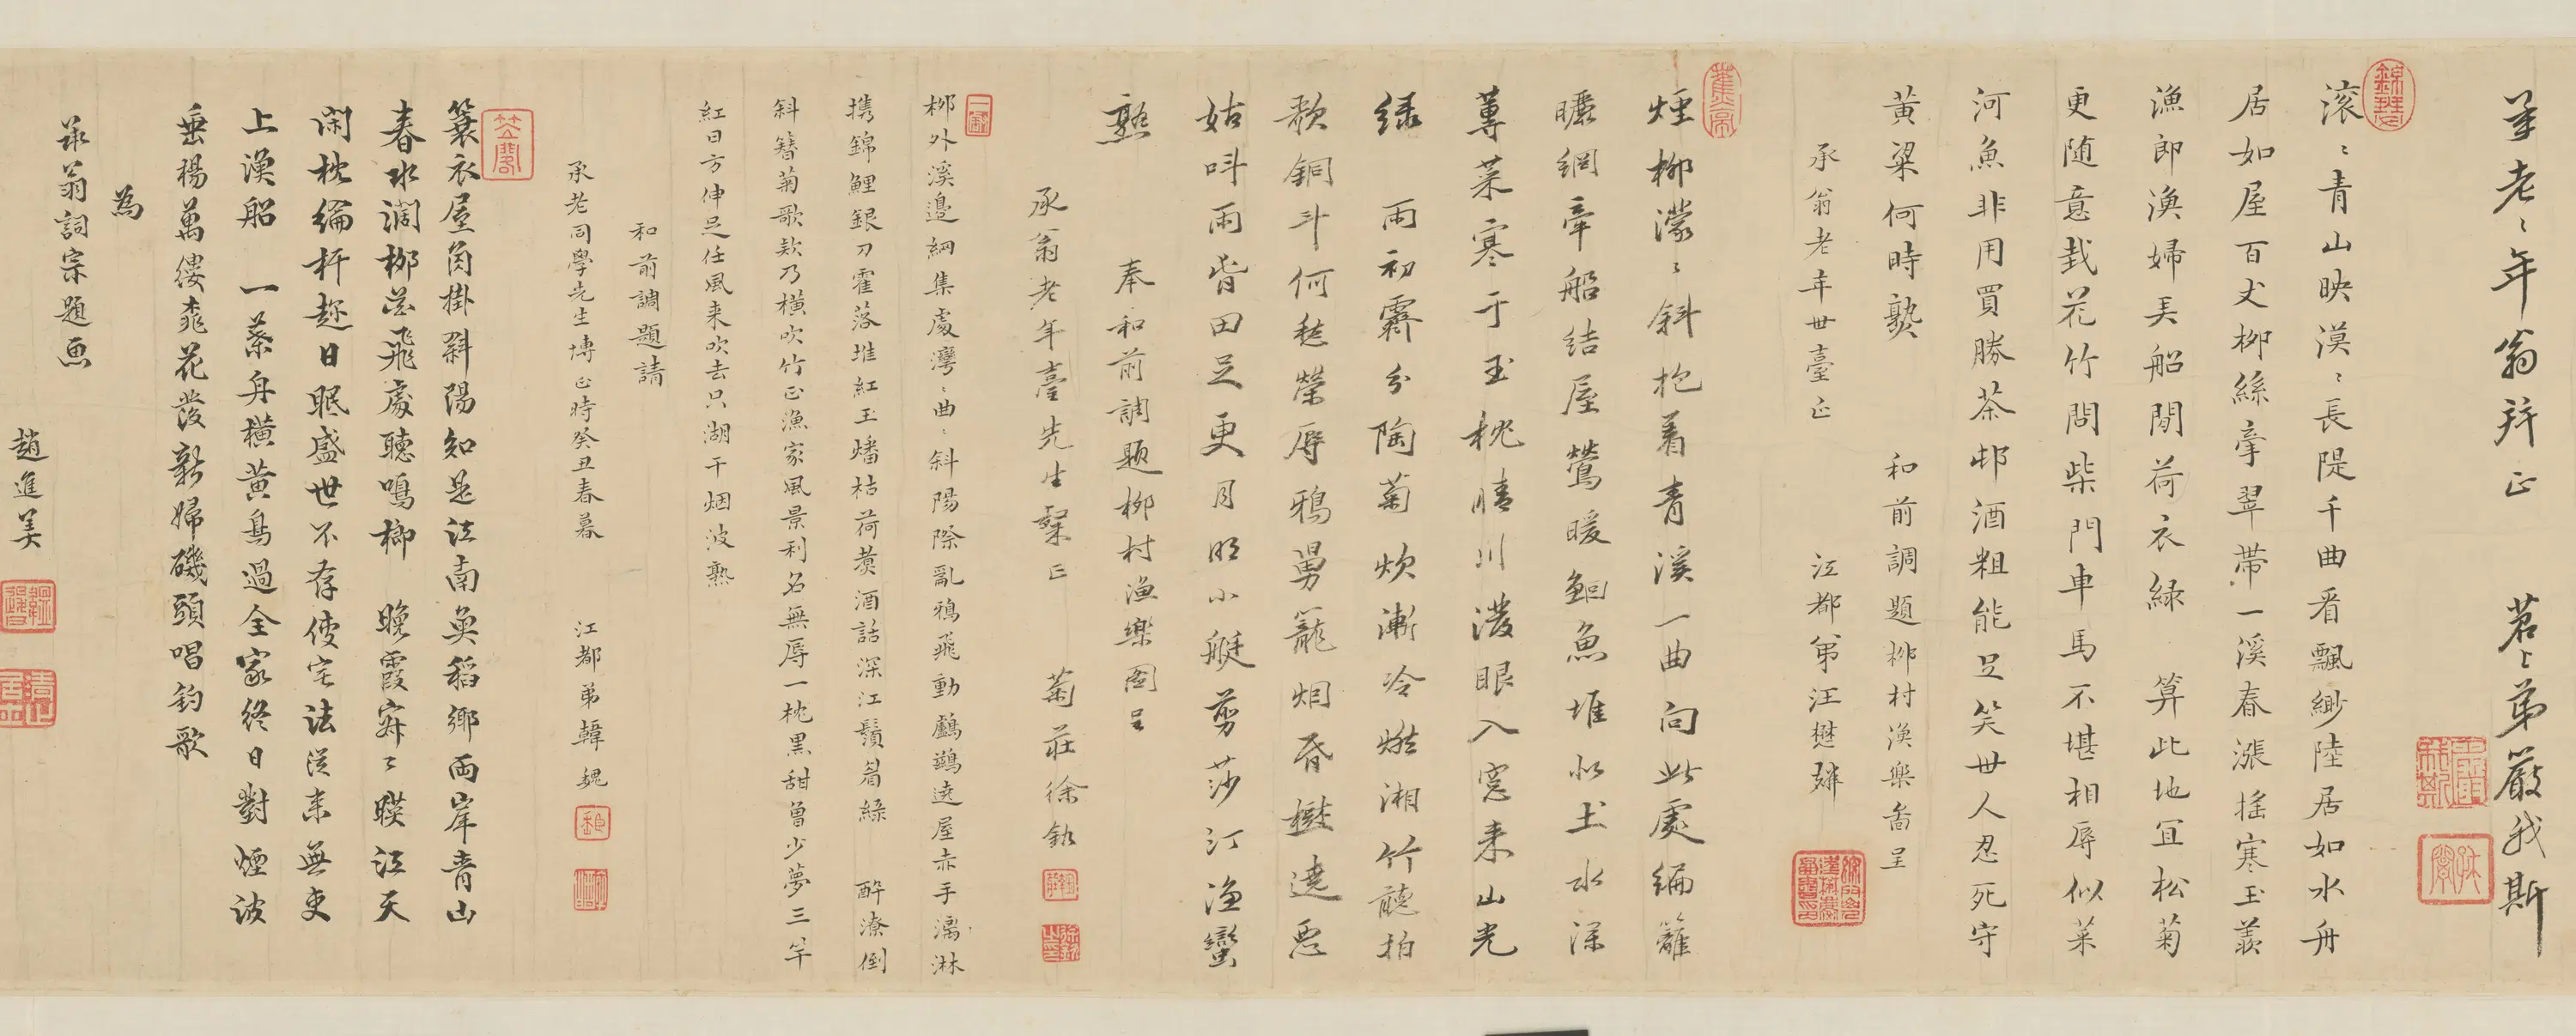 老老年翁許正　苕上弟嚴我斯
滚〻青山映漠〻長隄千曲看飄緲陸居如水舟
居如屋百丈柳絲牽翠帶一溪春漲搖寒玉羨
漁郎漁婦美船閒荷衣緑　算此地宜松菊
更随意栽花竹問柴門車馬不堪相辱似菜
河魚非用買勝茶邨酒粗能足笑世人忍死守
黄粱何時熟　和前調題柳村漁樂啚呈
承翁老年世臺正　江都弟江懋
煙柳濛〻斜抱着青溪一曲向此處編籬
曬網牽船結屋鶯暖鮰魚堆似土水深
蓴菜寒于玉枕晴川潑眼入窓来山光
緑　雨初霽分陶菊炊漸冷燃湘竹聽拍
歌銅斗何愁榮辱鴉舅籠烟昏樾遶惡
姑呌雨皆田足更月明小艇剪莎汀漁蠻
熟　奉和前調題柳村漁樂圖呈
承翁老年臺先生粲正　菊莊徐釚
柳外溪邊網集處灣〻曲〻斜陽際亂鴉飛動鸕鷀遶屋赤手漓淋
携錦鯉銀刀霍落堆紅玉燔枯荷煑酒話深江鬚眉緑　酔潦倒
斜簪菊歌欸乃横吹竹正漁家風景利名無辱一枕黒甜曽少夢三竿
紅日方伸足任風来吹去只湖干烟波熟
和前調題請
承老同學先生博正時癸丑春暮　江都弟韓魏
蓑衣屋角掛斜陽知是江南奐稻鄉兩岸青山
春水濶柳花飛處聽鳴榔　晚霞寂〻暎江天
閑枕綸杆趂日眠盛世不存使宅法從来無吏
上漁船　一葉舟横黄鳥過全家終日對煙波
垂楊萬縷桃花發新婦磯頭唱釣歌
為
承翁詞宗題画
趙進美